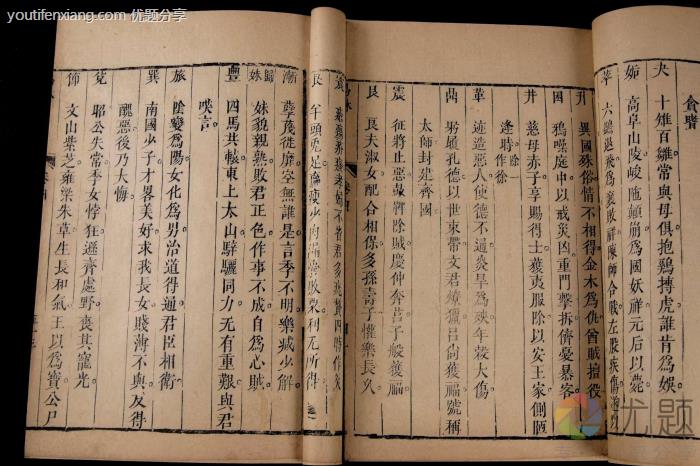 youtifenxiang.com 优题分享
食嗜
夬 十雉百雛常與母俱抱鷄搏虎誰肯爲娛
姤 高阜山陵峻陁顛崩爲國妖祥元后以薨
萃 六鷁退飛爲襄敗祥陳師合戰左股疾傷
升 異國殊俗情不相得金木爲仇曾賊擅役
困 鴉噪庭中以戒災凶重門擊拆備憂暴客
井 慈母赤子享賜得士獲夷服除以安王家側陋
逢時 除一作徐
革 逃造惡人使德不通炎旱爲殃年穀大傷
鼎 躬履孔德以世束帶文君燎獵呂尚獲福號稱
太師封建齊國
震 征將止惡鼓鞞除賊慶仲奔莒子般獲福
艮 艮夫淑女配合相保多孫壽子懽樂長久
卷四
震
艮 羊頭兔足瘦少肉漏囊敗粟利无所得
漸 孽茂徙庸空無誰是言季不明樂臧少解
歸妹 妹貌親熟敗君正色作事不成自爲心賊
豐 四馬共轅東上太山騂驪同力无有重艱與君
咲言
旅 陰變爲陽女化爲男治道得通君臣相衡
巽 南國少子才畧美好求我長女賤薄不與反得
醜惡後乃大悔
兌 昭公失常季女悖狂遜齊處野喪其寵光
節 文山紫芝雍梁朱草生長和氣王以爲寶公尸
优题